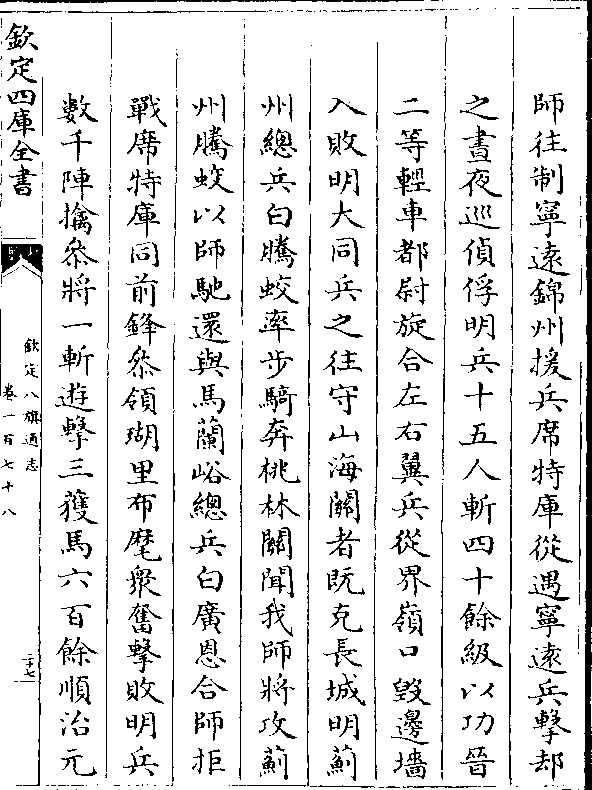 師往制寧遠錦州援兵席特庫從遇寧遠兵擊却
之晝夜巡偵俘明兵十五人斬四十餘級以功晉
二等輕車都尉旋合左右翼兵從界嶺口毁邊墻
入敗明大同兵之往守山海關者既克長城明薊
州總兵白騰蛟率步騎奔桃林關聞我師將攻薊
州騰蛟以師馳還與馬蘭峪總兵白廣恩合師拒
戰席特庫同前鋒叅領瑚里布麾衆奮擊敗明兵
數千陣擒叅將一斬遊擊三獲馬六百餘順治元
欽定四庫全書
欽定八旗通志
卷一百七十八